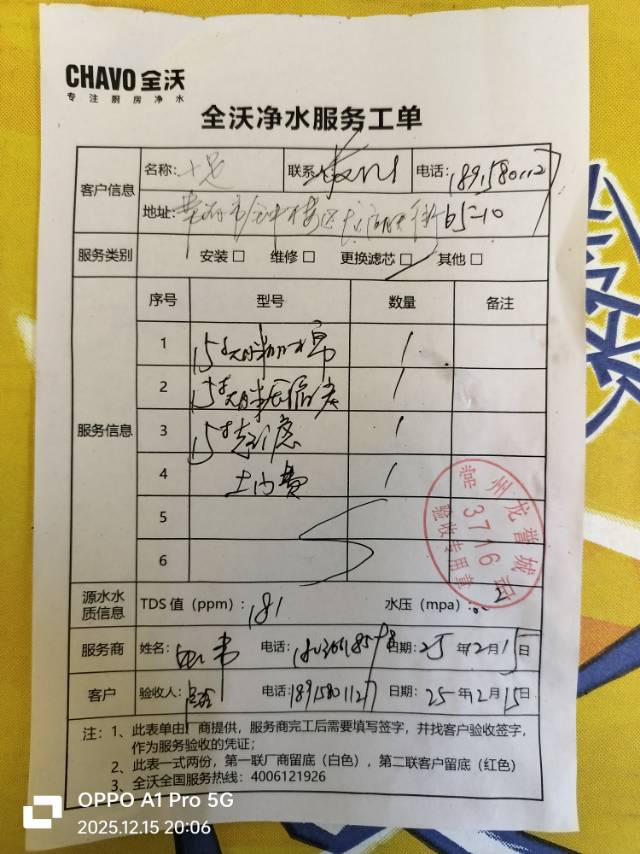 CHAVO 全沃
专注厨房净水
全沃净水服务工单
客户信息 名称: 联系 电话: 18915801127
地址: 65-10
服务类别 安装□ 维修□ 更换滤芯□ 其他□
服务信息 序号 型号 数量 备注
1 15寸 棉 1
2 15寸 1
3 15寸 1
4 上门费 1
5
6
常州龙誉城
3716店
验收专用章
源水水质信息 TDS 值（ppm）: 181 水压（mpa）:
服务商 姓名: 电话: 日期: 25 年12月15日
客户 验收人: 电话:18915801127 日期: 25 年12月15日
注：1、此表单由厂商提供，服务商完工后需要填写签字，并找客户验收签字，
作为服务验收的凭证；
2、此表一式两份，第一联厂商留底（白色），第二联客户留底（红色）
3、全沃全国服务热线：4006121926
OPPO A1 Pro 5G
2025.12.15 20:06